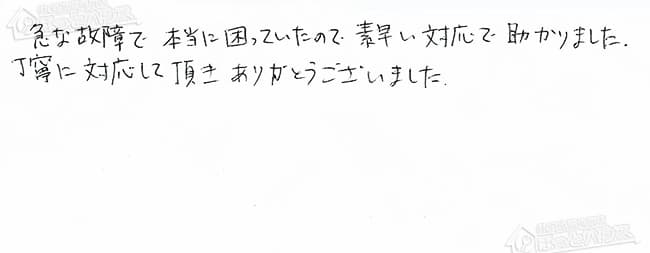 急な故障で 本当に困っていたので 素早い対応で 助かりました.
丁寧に対応して頂き ありがとうございました.